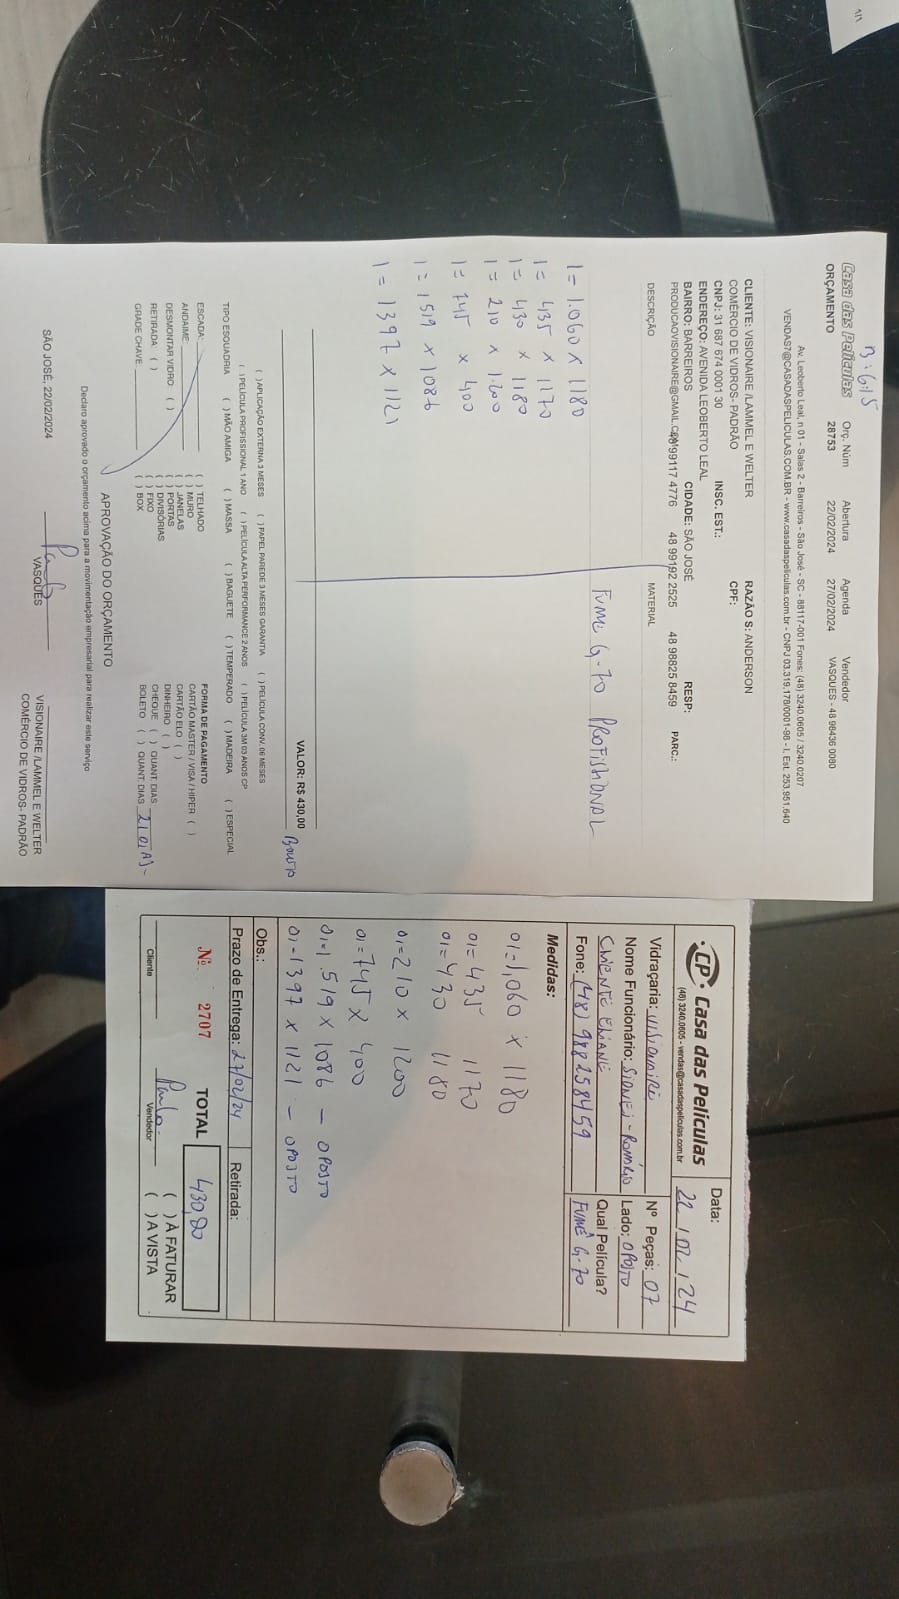 1/1
B: 615
Casa das Películas
Orç. Núm
Abertura
Agenda
Vendedor
ORÇAMENTO
28753
22/02/2024
27/02/2024
VASQUES - 48 98436 0080
Av. Leoberto Leal, n 01 - Salas 2 - Barreiros - São José - SC - 88117-001 Fones: (48) 3240.0605 / 3240.0207
VENDAS7@CASADASPELICULAS.COM.BR - www.casadaspeliculas.com.br - CNPJ 03.319.178/0001-98 - I, Est. 253.951.640
CLIENTE: VISIONAIRE /LAMMEL E WELTER
COMÉRCIO DE VIDROS- PADRÃO
RAZÃO S: ANDERSON
CNPJ: 31 687 674 0001 30
INSC. EST.:
CPF:
ENDEREÇO: AVENIDA LEOBERTO LEAL
BAIRRO: BARREIROS
CIDADE: SÃO JOSÉ
RESP:
PRODUCAOVISIONAIRE@GMAIL.COM
48 99117 4776
48 99192 2525
48 98825 8459
PARC.:
DESCRIÇÃO
MATERIAL
FUMÊ G-70 PROFISHONAL
1= 1.060 x 1180
1= 435 x 1170
1= 430 x 1180
1= 210 x 1.200
1= 745 x 400
1= 1519 x 1086
1= 1397 x 1121
VALOR: R$ 430,00
Boleto
( ) APLICAÇÃO EXTERNA 3 MESES ( ) PAPEL PAREDE 3 MESES GARANTIA ( ) PELÍCULA CONV. 06 MESES
( ) PELÍCULA PROFISSIONAL 1 ANO ( ) PELÍCULA ALTA PERFORMANCE 2 ANOS ( ) PELÍCULA 3M 03 ANOS CP
TIPO ESQUADRIA ( ) MÃO AMIGA ( ) MASSA ( ) BAGUETE ( ) TEMPERADO ( ) MADEIRA ( ) ESPECIAL
ESCADA:
ANDAIME:
DESMONTAR VIDRO: ( )
RETIRADA: ( )
GRADE CHAVE
( ) TELHADO
( ) MURO
( ) JANELAS
( ) PORTAS
( ) DIVISÓRIAS
( ) FIXO
( ) BOX
FORMA DE PAGAMENTO
CARTÃO MASTER / VISA / HIPER ( )
CARTÃO ELO ( )
DINHEIRO ( )
CHEQUE ( ) QUANT. DIAS
BOLETO ( ) QUANT. DIAS 21 DIAS-
APROVAÇÃO DO ORÇAMENTO
Declaro aprovado o orçamento acima para a movimentação empresarial para realizar este serviço
SÃO JOSÉ, 22/02/2024
Paulo
VASQUES
VISIONAIRE /LAMMEL E WELTER
COMÉRCIO DE VIDROS- PADRÃO
CP Casa das Películas
(48) 3240.0605 - vendas@casadaspeliculas.com.br
Data:
22 / 02 / 24
Vidraçaria: VISIONAIRE
Nº Peças: 07
Nome Funcionário: SIDNEI - ROMÁRIO
Lado: OPOSTO
CLIENTE ELIANE
Qual Película?
Fone: (48) 988258459
FUMÊ G-70
Medidas:
01=1,060 x 1180
01= 435 1170
01= 430 1180
01= 210 x 1200
01= 745 x 400
01=1.519 x 1086 - OPOSTO
01=1397 x 1121 - OPOSTO
Obs.:
Prazo de Entrega: 27/02/24
Retirada:
Nº 2707
TOTAL
430,00
Paulo
Cliente
Vendedor
( ) À FATURAR
( ) A VISTA